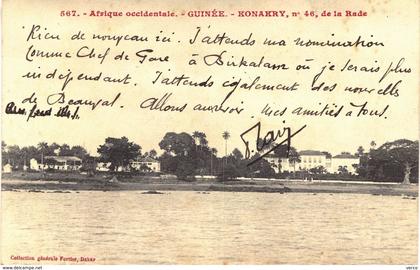 567. - Afrique occidentale. - GUINÉE. - KONAKRY, n° 46, de la Rade
Rien de nouveau ici. J'attends ma nomination
comme Chef de Gare à où je serais plus
indépendant. J'attends également des nouvelles
de Beauval. Allons au revoir. Mes amitiés à tous.
Collection générale Fortier, Dakar